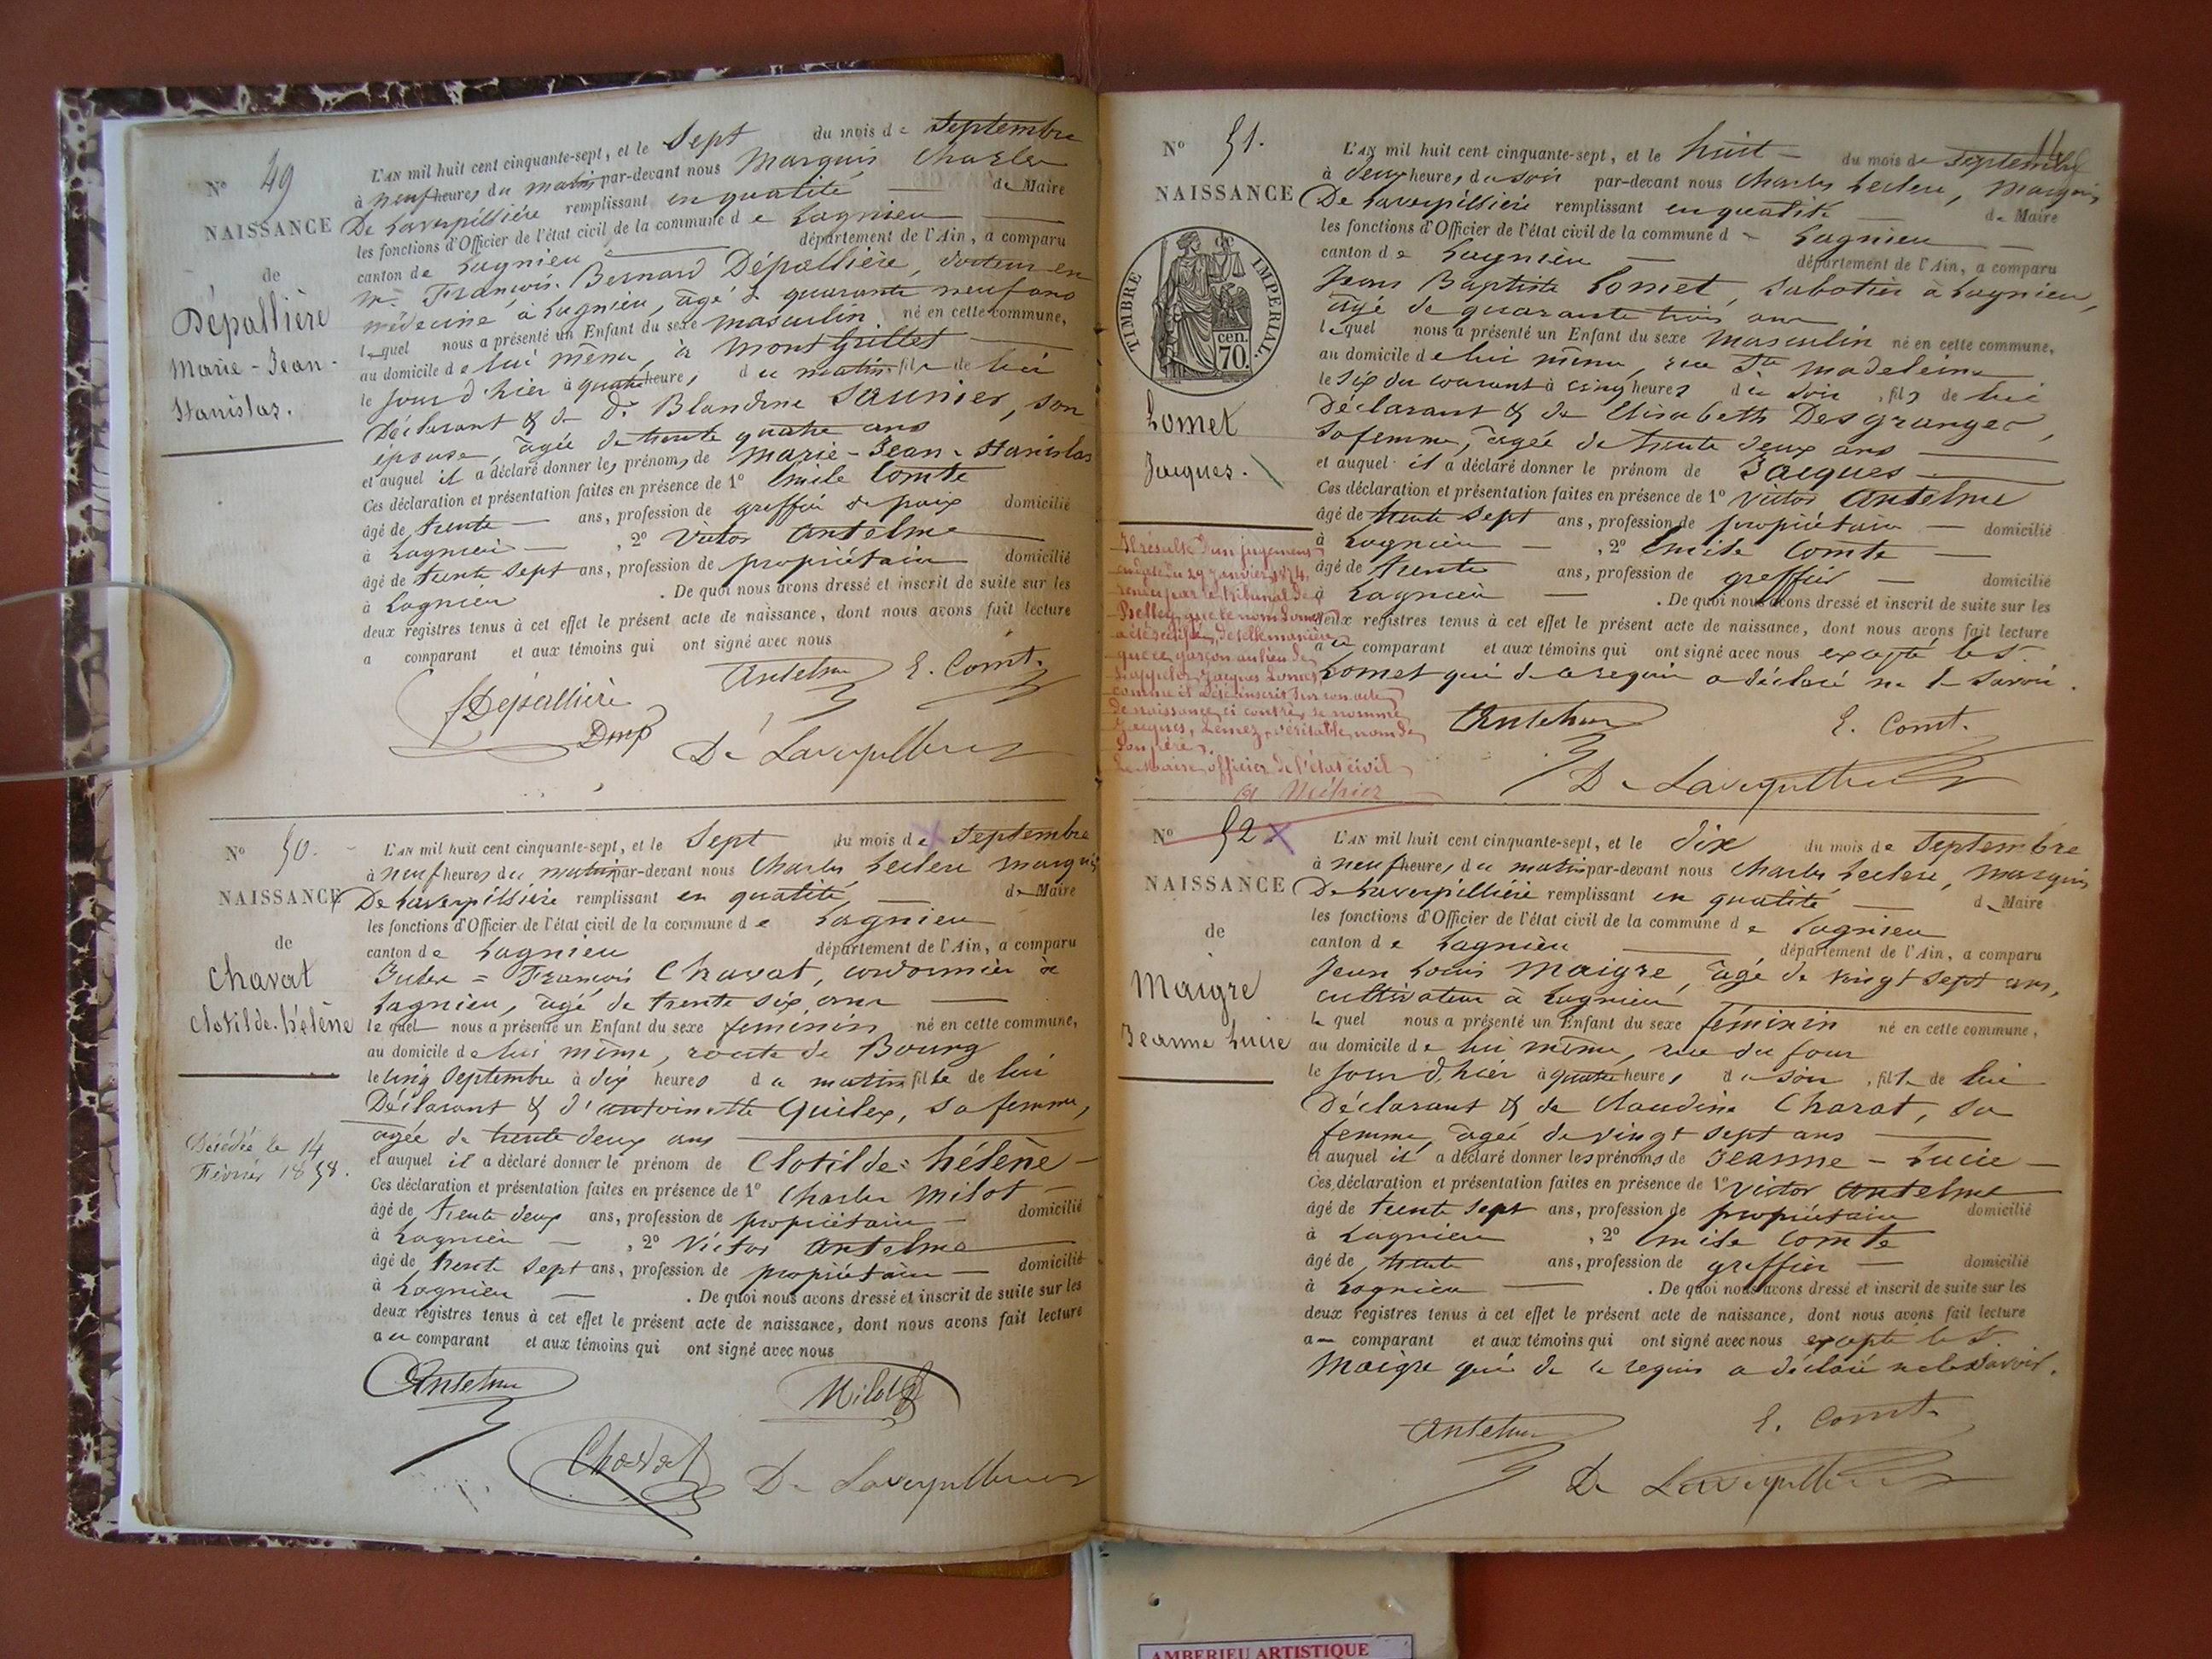 N° 49
NAISSANCE
de
Dépallière
Marie-Jean-
Stanislas.
L'AN mil huit cent cinquante-sept, et le Sept du mois de Septembre
à neuf heures du matin par-devant nous Marquis Charles
De Laverpillière remplissant en qualité de Maire
les fonctions d'Officier de l'état civil de la commune de Lagnieu
canton de Lagnieu département de l'Ain, a comparu
Mr. François-Bernard Dépallière, docteur en
médecine à Lagnieu, âgé de quarante neuf ans
lequel nous a présenté un Enfant du sexe masculin né en cette commune,
au domicile de lui même, à Montgrillet
le jour d'hier à quatre heures du matin fils de lui
Déclarant & de De Blandine Saunier, son
épouse, âgée de trente quatre ans
et auquel il a déclaré donner les prénoms de Marie-Jean-Stanislas
Ces déclaration et présentation faites en présence de 1° Emile Comte
âgé de trente ans, profession de greffier de paix domicilié
à Lagnieu, 2° Victor Antelme
âgé de trente sept ans, profession de propriétaire domicilié
à Lagnieu. De quoi nous avons dressé et inscrit de suite sur les
deux registres tenus à cet effet le présent acte de naissance, dont nous avons fait lecture
a comparant et aux témoins qui ont signé avec nous
Antelme E. Comte
Dépallière
Dmp De Laverpillière
N° 50.
NAISSANCE
de
Chavat
Clotilde-hélène
Décédée le 14
Février 1858.
L'AN mil huit cent cinquante-sept, et le Sept du mois de Septembre
à neuf heures du matin par-devant nous Charles Leclerc Marquis
De Laverpillière remplissant en qualité de Maire
les fonctions d'Officier de l'état civil de la commune de Lagnieu
canton de Lagnieu département de l'Ain, a comparu
Jules = François Chavat, cordonnier à
Lagnieu, âgé de trente six ans
lequel nous a présenté un Enfant du sexe feminin né en cette commune,
au domicile de lui même, route de Bourg
le cinq Septembre à dix heures du matin fille de lui
Déclarant & d'antoinette Quilex, sa femme,
agée de trente deux ans
et auquel il a déclaré donner le prénom de Clotilde = hélène
Ces déclaration et présentation faites en présence de 1° Charles Milot
âgé de trente deux ans, profession de propriétaire domicilié
à Lagnieu, 2° Victor Antelme
âgé de trente sept ans, profession de propriétaire domicilié
à Lagnieu. De quoi nous avons dressé et inscrit de suite sur les
deux registres tenus à cet effet le présent acte de naissance, dont nous avons fait lecture
au comparant et aux témoins qui ont signé avec nous
Antelme Milot
Chavat De Laverpillière
N° 51.
NAISSANCE
de
TIMBRE IMPERIAL.
cen.
70.
Lomet
Jacques.
Il résulte d'un jugement
en date du 29 janvier 1874,
rendu par le tribunal de
Belley, que le nom Lomet
a été rectifié, de telle manière
que ce garçon au lieu de
s'appeler Jacques Lomet,
comme il a été inscrit sur son acte
de naissance ci contre, se nomme
Jacques, Lemez, véritable nom de
son père.
Le Maire officier de l'état civil
L'AN mil huit cent cinquante-sept, et le huit du mois de Septembre
à deux heures du soir par-devant nous Charles Leclerc, Marquis
De Laverpillière remplissant en qualité de Maire
les fonctions d'Officier de l'état civil de la commune d Lagnieu
canton de Lagnieu département de l'Ain, a comparu
Jean Baptiste Lomet, Sabotier à Lagnieu,
âgé de quarante trois ans
lequel nous a présenté un Enfant du sexe masculin né en cette commune,
au domicile de lui même, rue Ste Madeleine
le Six du courant à cinq heures du soir, fils de lui
Déclarant & de Elisabeth Desgranges,
Sa femme, âgée de trente deux ans
et auquel il a déclaré donner le prénom de Jacques
Ces déclaration et présentation faites en présence de 1° Victor Antelme
âgé de trente sept ans, profession de propriétaire domicilié
à Lagnieu, 2° Emile Comte
âgé de trente ans, profession de greffier domicilié
à Lagnieu. De quoi nous avons dressé et inscrit de suite sur les
deux registres tenus à cet effet le présent acte de naissance, dont nous avons fait lecture
au comparant et aux témoins qui ont signé avec nous excepté le S.
Lomet qui de ce requis a déclaré ne le savoir.
Antelme E. Comte
De Laverpillière
N° 52
NAISSANCE
de
Maigre
Jeanne Lucie
L'AN mil huit cent cinquante-sept, et le dix du mois de Septembre
à neuf heures du matin par-devant nous Charles Leclerc, Marquis
De Laverpillière remplissant en qualité de Maire
les fonctions d'Officier de l'état civil de la commune de Lagnieu
canton de Lagnieu département de l'Ain, a comparu
Jean Louis Maigre, âgé de vingt sept ans,
cultivateur à Lagnieu
lequel nous a présenté un Enfant du sexe féminin né en cette commune,
au domicile de lui même, rue du four
le jour d'hier à quatre heures du soir, fille de lui
Déclarant & de Claudine Charat, sa
femme, âgée de vingt sept ans
et auquel il a déclaré donner les prénoms de Jeanne - Lucie
Ces déclaration et présentation faites en présence de 1° Victor Antelme
âgé de trente sept ans, profession de propriétaire domicilié
à Lagnieu, 2° Emile Comte
âgé de trente ans, profession de greffier domicilié
à Lagnieu. De quoi nous avons dressé et inscrit de suite sur les
deux registres tenus à cet effet le présent acte de naissance, dont nous avons fait lecture
a comparant et aux témoins qui ont signé avec nous excepté le S.
Maigre qui de ce requis a déclaré ne le savoir.
Antelme E. Comte
De Laverpillière
AMBERIEU ARTISTIQUE